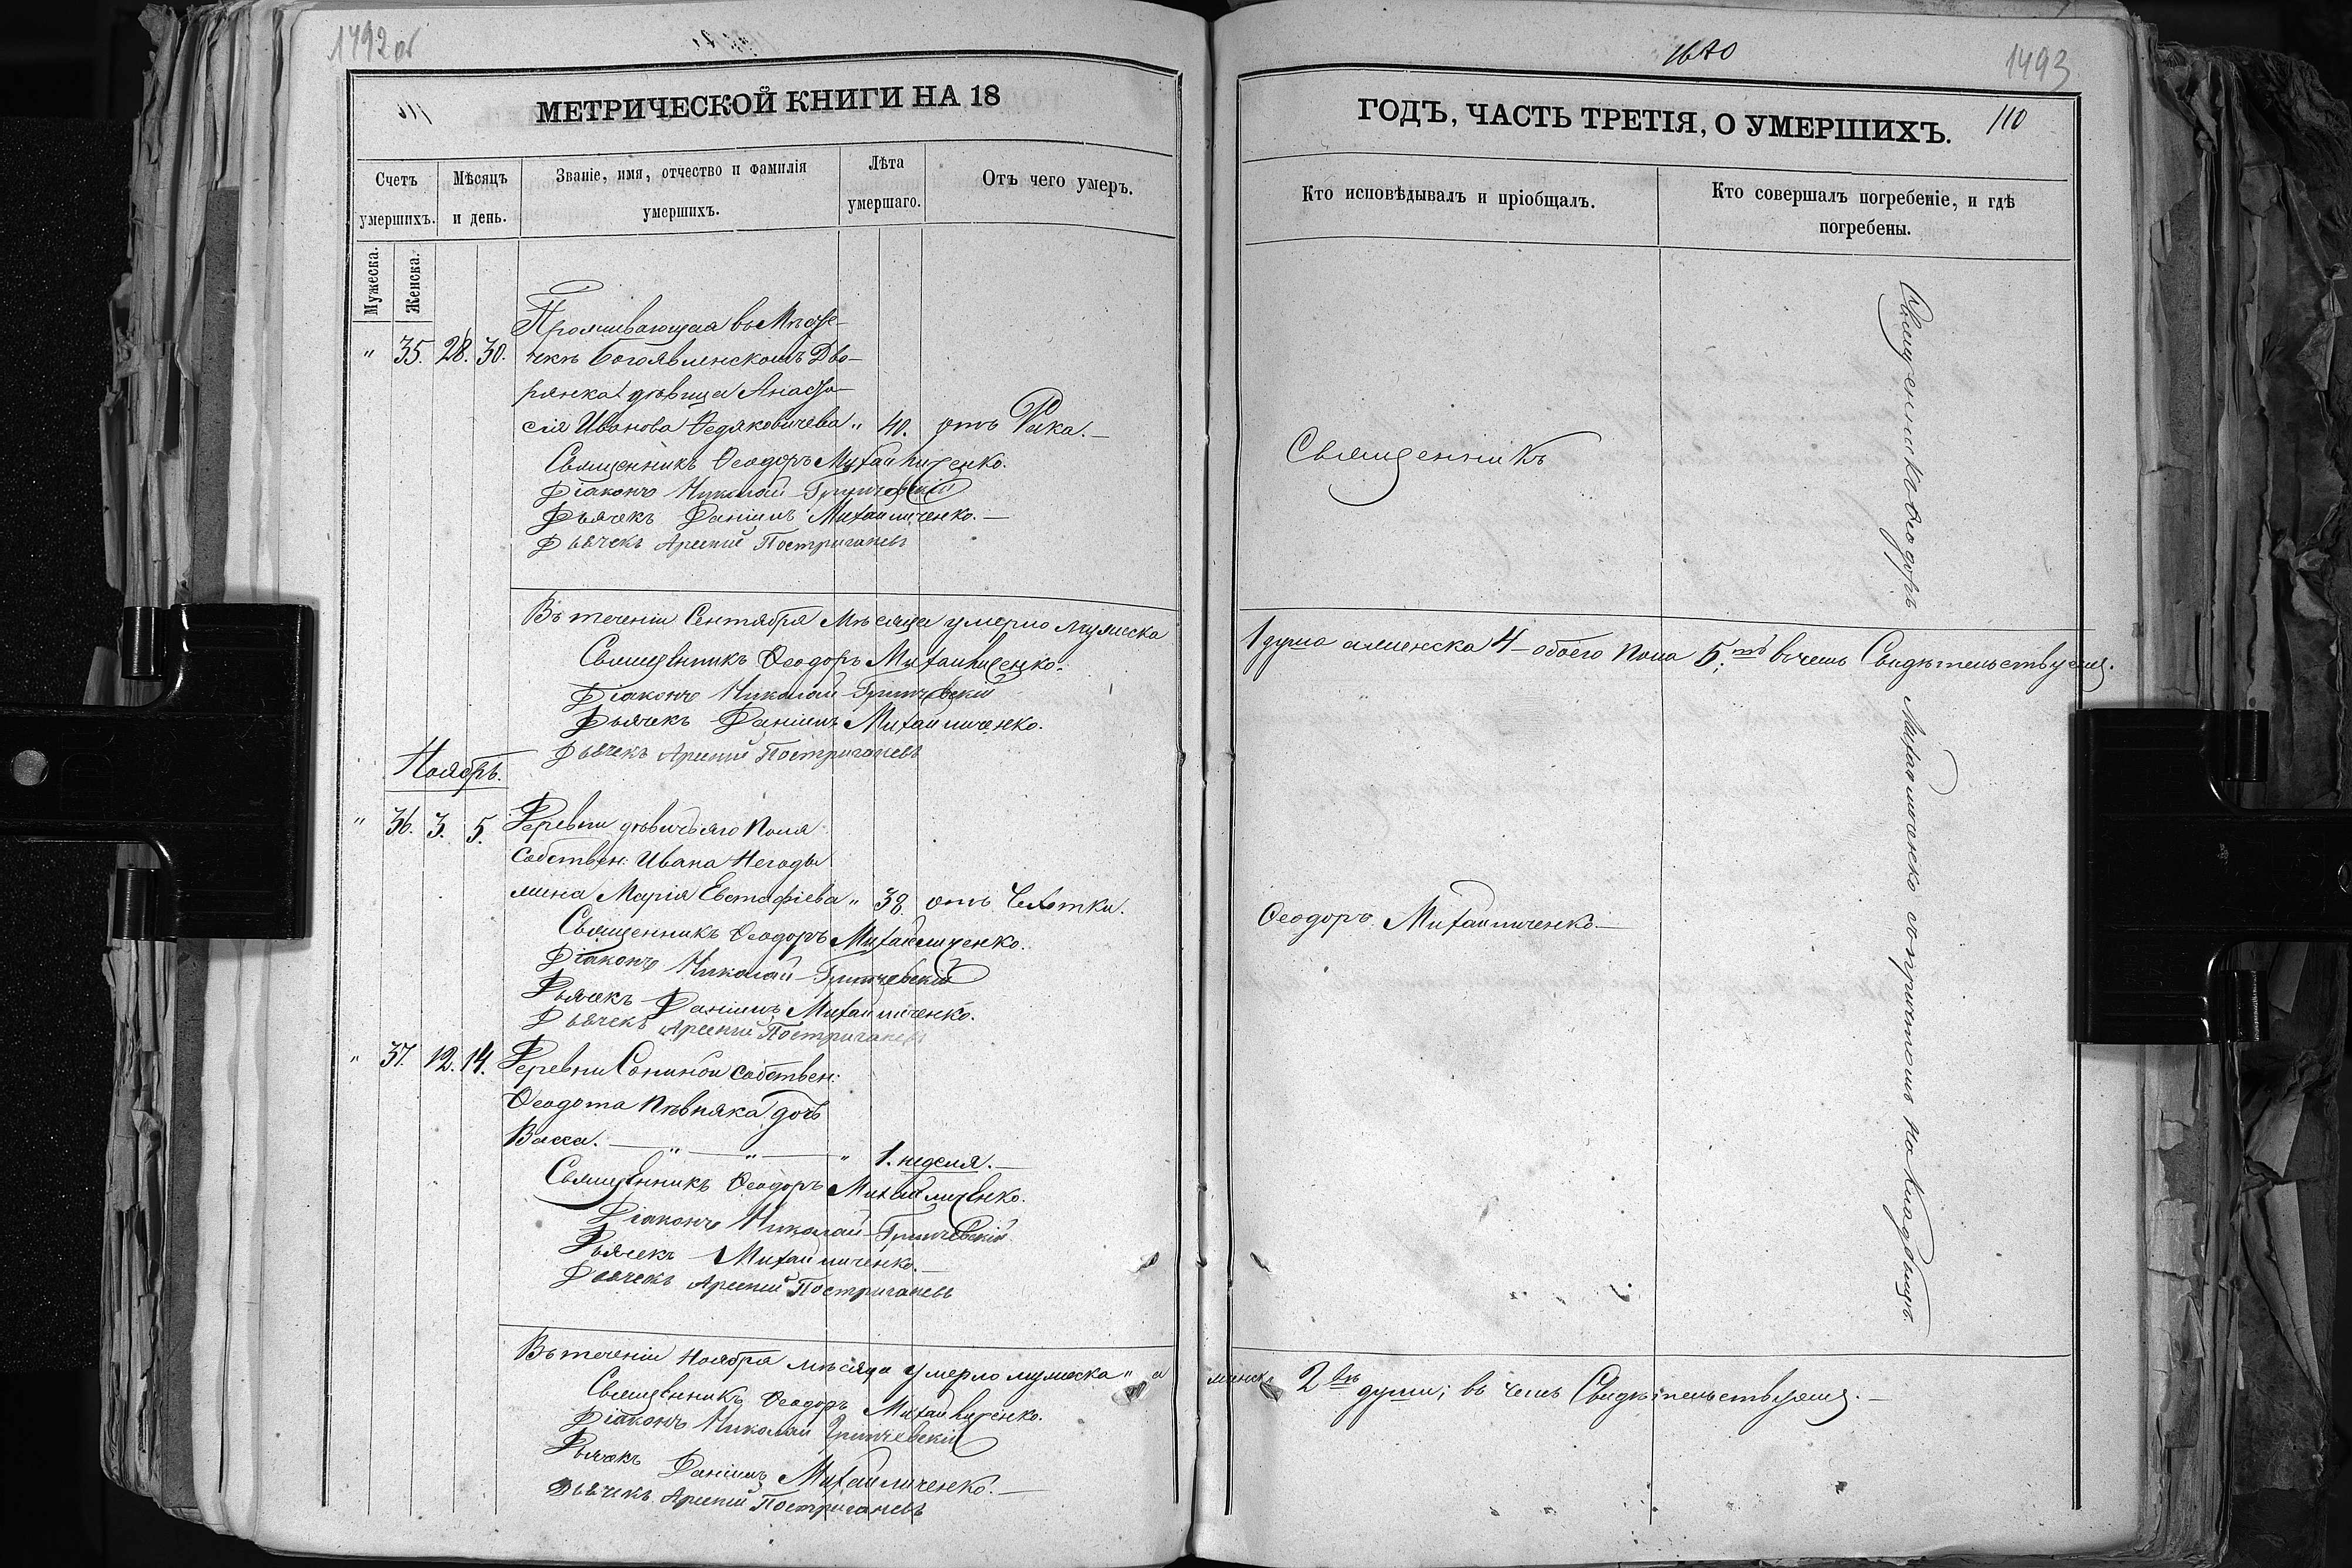 1492 об
МЕТРИЧЕСКОЙ КНИГИ НА 18
Счетъ умершихъ.
Мѣсяцъ и день.
Званіе, имя, отчество и фамилія умершихъ.
Лѣта умершаго.
Отъ чего умеръ.
Мужеска.
Женска.
Проживающая въ Мѣсте-
" 35. 28. 30. чкѣ Богоявленскомъ Дво-
рянка дѣвица Анаста-
сія Иванова Ѳедяковичева " 40. отъ Рака.—
Священникъ Ѳеодоръ Михайличенко.
Діаконъ Николай
Дьячекъ Даніилъ Михайличенко.—
Дьячекъ Арсеній Постригачевъ
Въ теченіи Сентября Мѣсяца умерло мужеска
Священникъ Ѳеодоръ Михайличенко.
Діаконъ Николай
Дьячекъ Даніилъ Михайличенко.
Дьячекъ Арсеній Постригачевъ
Ноябрь.
" 36. 3. 5. Деревни дѣвичьяго Поля
собствен: Ивана Негоды
жена Марія Евстафіева " 38. отъ Чехотки.
Священникъ Ѳеодоръ Михайличенко.
Діаконъ Николай
Дьячекъ Даніилъ Михайличенко.
Дьячекъ Арсеній Постригачевъ
" 37. 12. 14. Деревни Сониной собствен:
Ѳеодота Пѣвняка дочь
Васса. — " — " — " 1. неделя.—
Священникъ Ѳеодоръ Михайличенко.
Діаконъ Николай
Дьячекъ Михайличенко.—
Дьячекъ Арсеній Постригачевъ
Въ теченіи Ноября мѣсяца умерло мужеска " а
Священникъ Ѳеодоръ Михайличенко.
Діаконъ Николай
Дьячекъ Даніилъ Михайличенко.—
Дьячекъ Арсеній Постригачевъ
1870
1493
ГОДЪ, ЧАСТЬ ТРЕТІЯ, О УМЕРШИХЪ.
110
Кто исповѣдывалъ и пріобщалъ.
Кто совершалъ погребеніе, и гдѣ погребены.
Священникъ
1 душа а женска 4 – обоего пола 5.ть въ чемъ Свидѣтельствуемъ.
Ѳеодоръ Михайличенко.—
Священникъ Ѳеодоръ Михайличенко съ причтомъ на Кладбищѣ.
женска 2вѣ души; въ чемъ Свидѣтельствуемъ.—